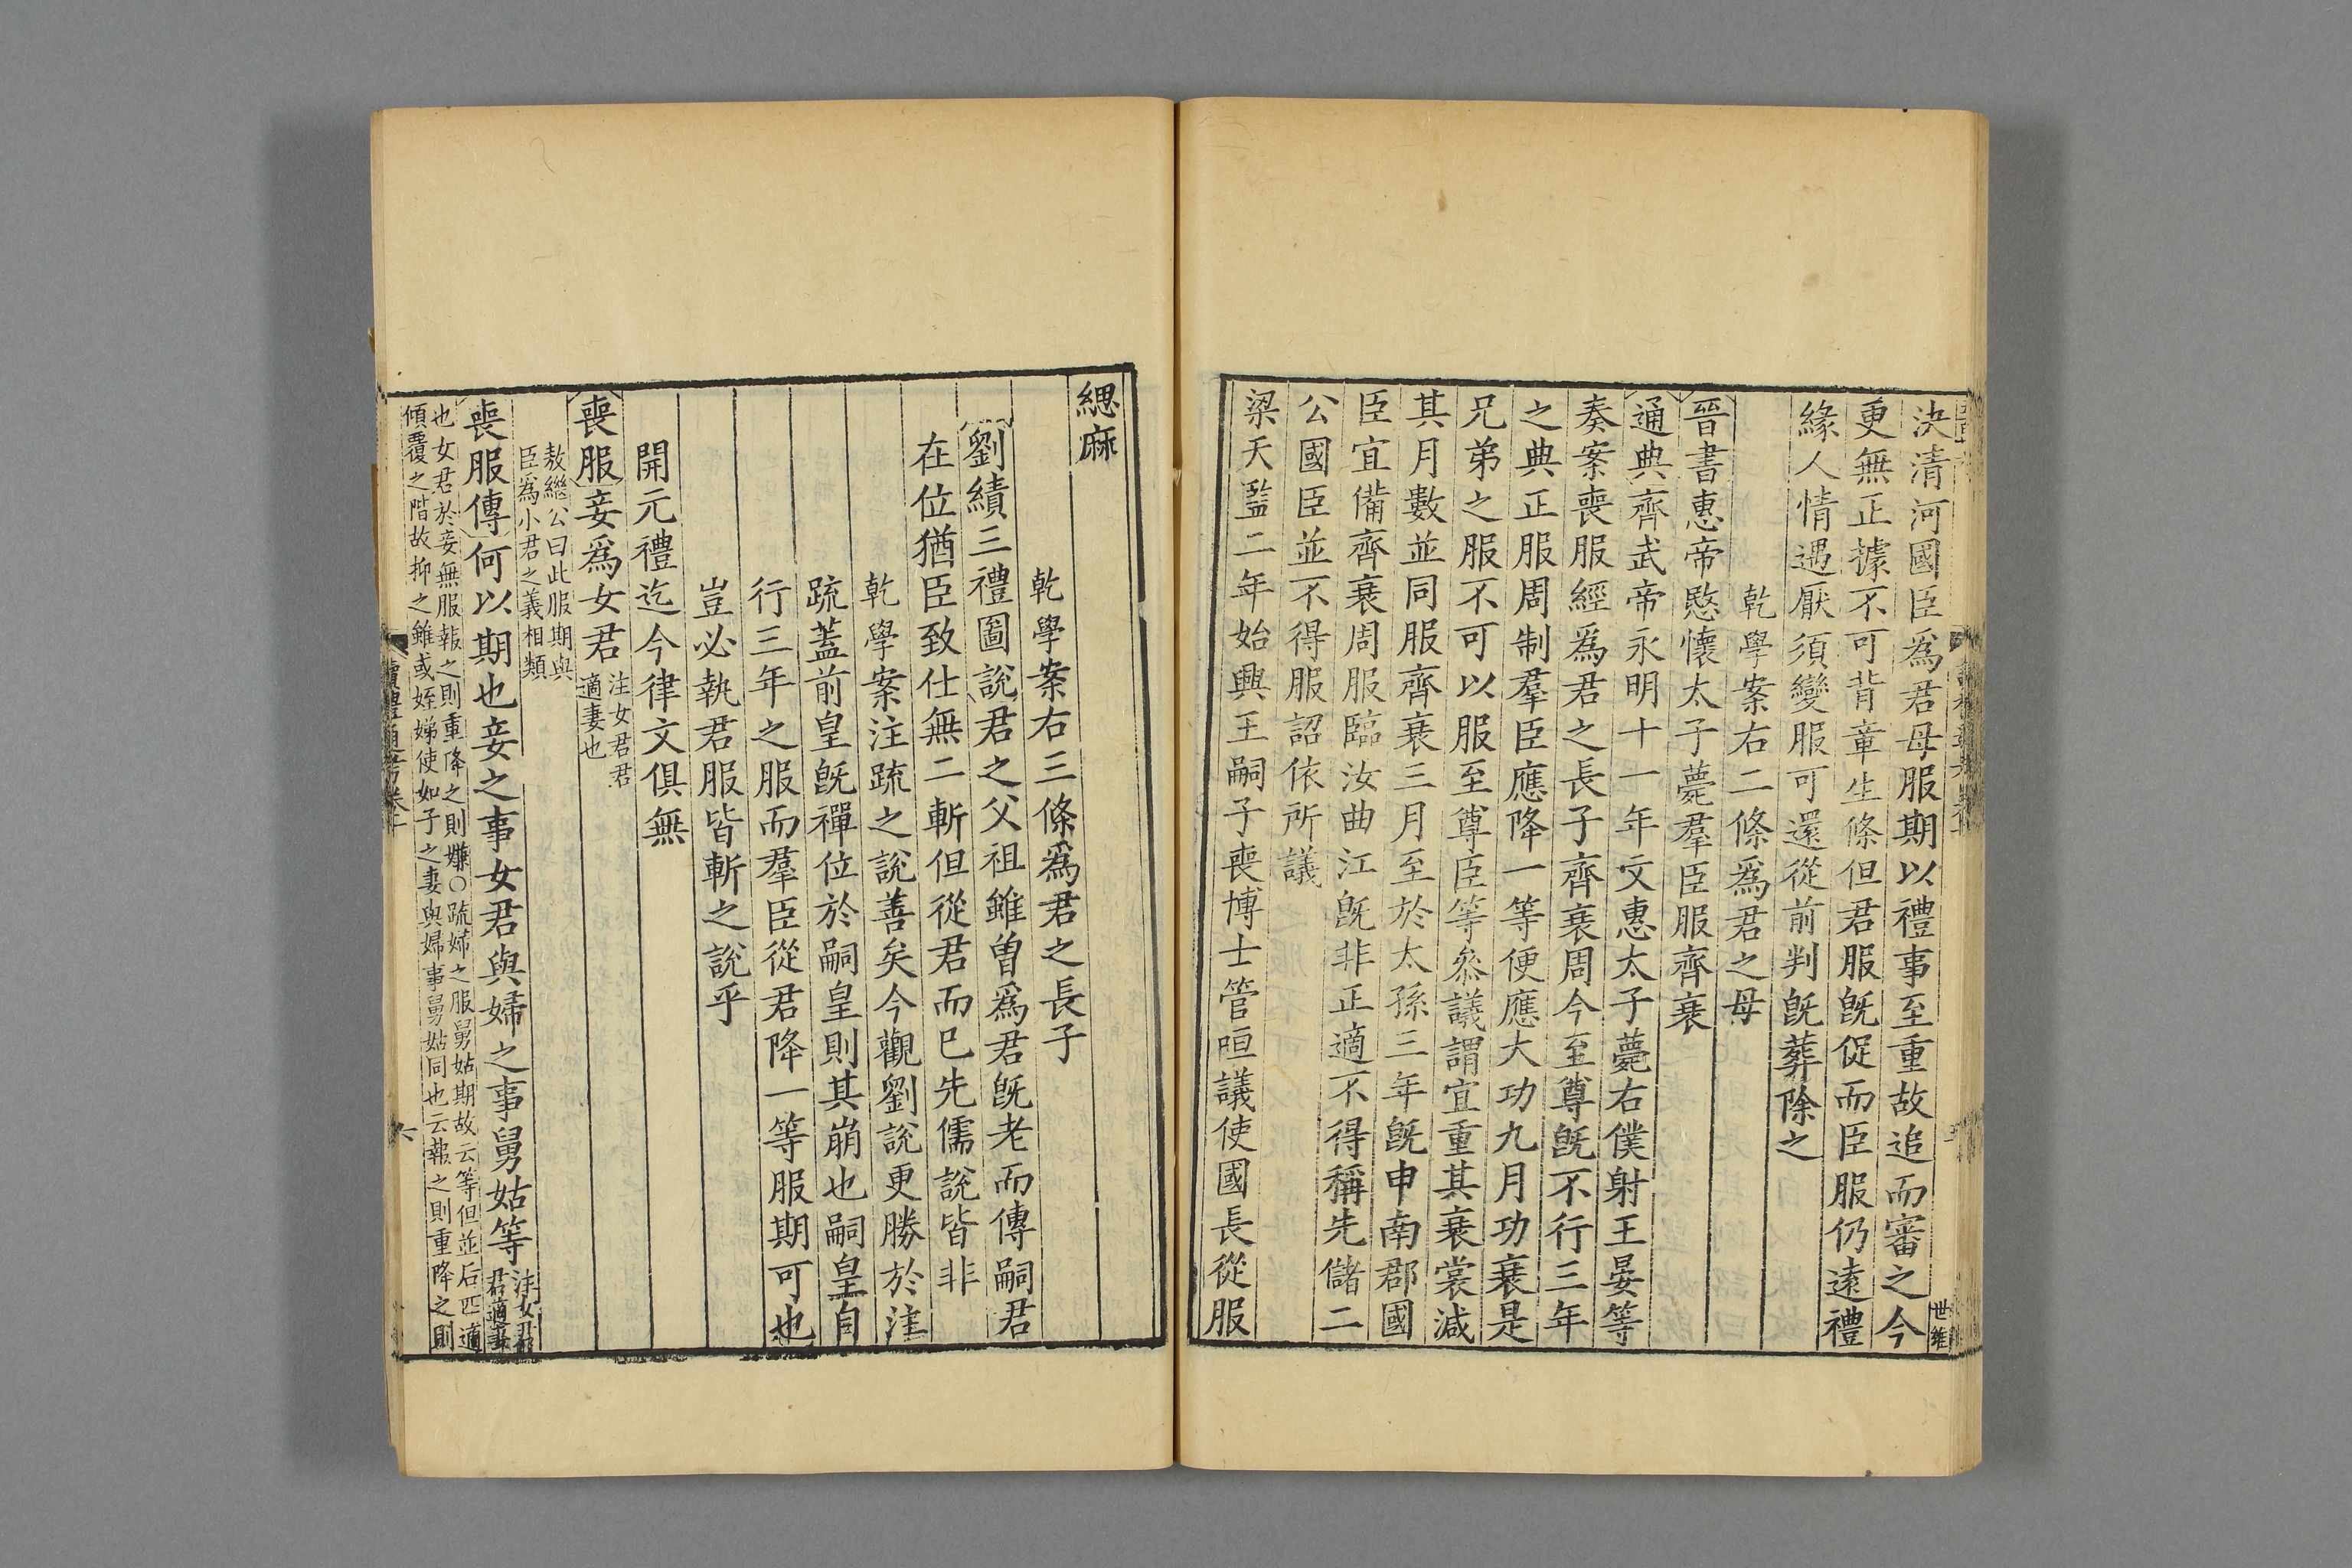 決清河國臣爲君母服期以禮事至重故追而審之今
更無正據不可背章生條但君服旣促而臣服仍遠禮
緣人情遇厭須變服可還從前判旣葬除之
乾學案右二條爲君之母
晉書惠帝愍懷太子薨羣臣服齊衰
通典齊武帝永明十一年文惠太子薨右僕射王晏等
奏案喪服經爲君之長子齊衰周今至尊旣不行三年
之典正服周制羣臣應降一等便應大功九月功衰是
兄弟之服不可以服至尊臣等叅議謂宜重其衰裳減
其月數並同服齊衰三月至於太孫三年旣申南郡國
臣宜備齊衰周服臨汝曲江旣非正適不得稱先儲二
公國臣並不得服詔依所議
梁天監二年始興王嗣子喪博士管晅議使國長從服
世維
緦麻
乾學案右三條爲君之長子
劉績三禮圖說君之父祖雖曾爲君旣老而傳嗣君
在位猶臣致仕無二斬但從君而已先儒說皆非
乾學案注疏之說善矣今觀劉說更勝於注
疏蓋前皇旣禪位於嗣皇則其崩也嗣皇自
行三年之服而羣臣從君降一等服期可也
豈必執君服皆斬之說乎
開元禮迄今律文俱無
喪服妾爲女君注女君君
適妻也
敖繼公曰此服期與
臣爲小君之義相類
喪服傳何以期也妾之事女君與婦之事舅姑等注女君
君適妻
也女君於妾無服報之則重降之則嫌○疏婦之服舅姑期故云等但並后匹適
傾覆之階故抑之雖或姪娣使如子之妻與婦事舅姑同也云報之則重降之則
讀禮通考卷十
六